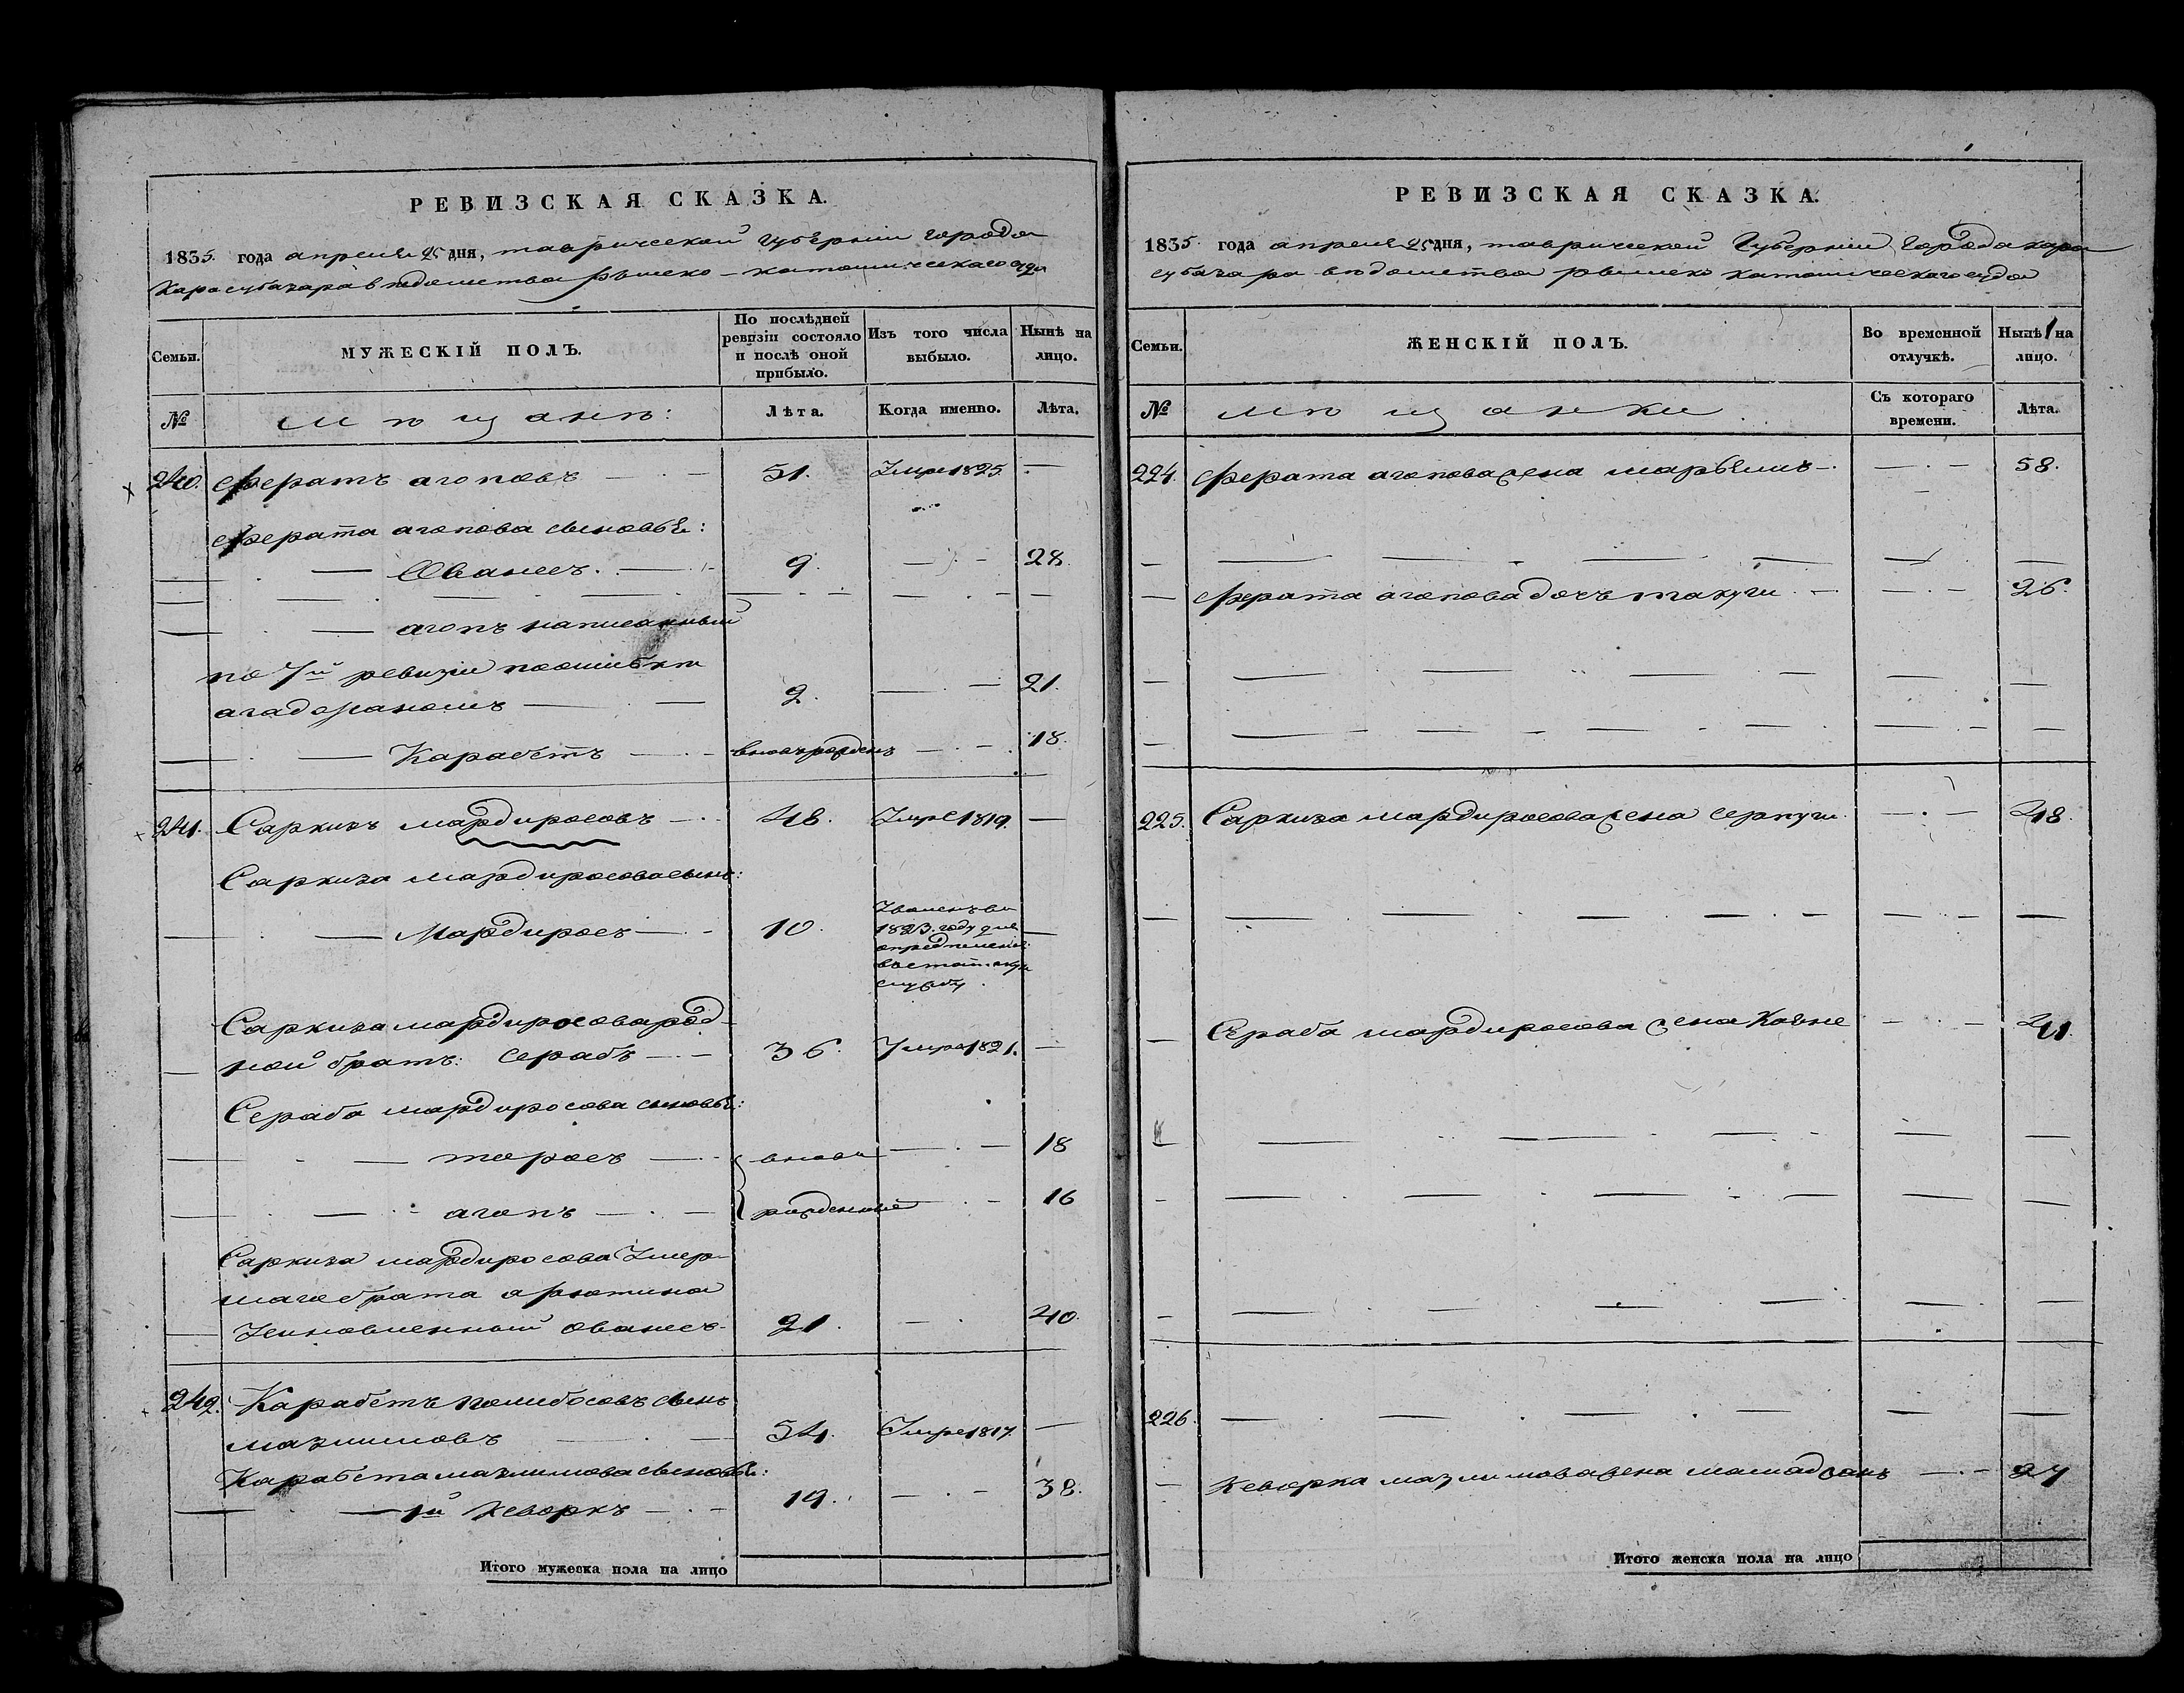 РЕВИЗСКАЯ СКАЗКА.
1835. года апреля 25 дня, таврической губернiи города
Карасубазара ведомства римско-католическаго суда
Семьи. МУЖЕСКIЙ ПОЛЪ. По послѣдней ревизiи состояло и послѣ оной прибыло. Изъ того числа выбыло. Нынѣ на лицо.
№ мѣщанѣ: Лѣта. Когда именно. Лѣта.
240. Ферать агоповъ — 51. Умре 1825. —
Ферата агопова сыновьѣ:
— Ованесъ. — 9. — 28.
— агопъ написанный
по 7й ревизiи поошибкѣ
— 2. — 21.
— Карабетъ — вновь рожденъ — 18.
241. Саркизъ мардиросовъ — 48. Умре 1819. —
Саркиза мардиросова сынъ:
— Мардиросъ — 10.
1823. году
службу.
Саркиза мардиросова род-
ной братъ: Серабъ — 36. Умре 1821. —
Сераба мардиросова сыновьѣ:
— торосъ — вновь — 18
— агопъ — рожденные — 16
Саркиза мардиросова Умер-
шаго брата арютина
Усиновленный ованесъ — 21. — 40.
242. Карабетъ сынъ
мазлимовъ — 54. Умре 1817. —
Карабета мазлимова сыновьѣ:
— 1й Кеворкъ — 19. — 38.
Итого мужеска пола на лицо
РЕВИЗСКАЯ СКАЗКА.
1835. года апреля 25 дня, таврической Губернiи Города кара
субазара ведомства римско католическаго суда
Семьи. ЖЕНСКIЙ ПОЛЪ. Во временной отлучкѣ. Нынѣ на лицо.
№ мѣщанки. Съ котораго времени. Лѣта.
224. Ферата агопова жена марьямъ — 58.
— Ферата агопова дочь такуги — 26.
225. Саркиза мардиросова жена серпуги — 48.
— Сераба мардиросова жена — 41.
226. —
— Кеворка мазлимова жена — 27
Итого женска пола на лицо